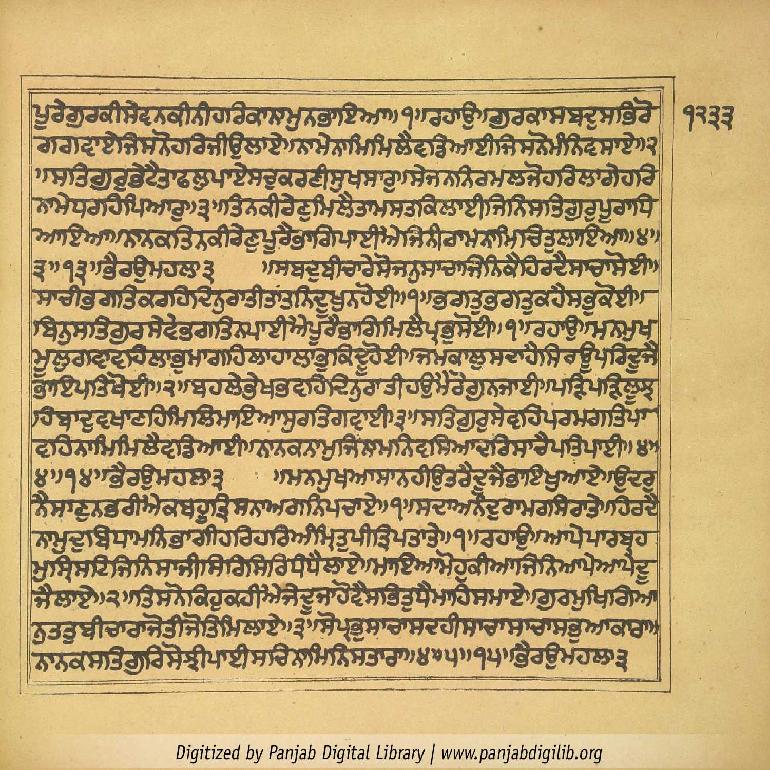 ਪੂਰੇਗੁਰਕੀਸੇਵਨਕੀਨੀਹਰਿਕਾਨਾਮੁਨਭਾਇਆ॥੧॥ਰਹਾਉ॥ਗੁਰਕਾਸਬਦੁਸਭਿਰੋ
ਗਗਵਾਏਜਿਸਨੋਹਰਿਜੀਉਲਾਏ॥ਨਾਮੇਨਾਮਿਮਿਲੈਵਡਿਆਈਜਿਸਨੋਮੰਨਿਵਸਾਏ॥੨
॥ਸਤਿਗੁਰੁਭੇਟੈਤਾਫਲੁਪਾਏਸਚੁਕਰਣੀਸੁਖਸਾਰੁ॥ਸੇਜਨਨਿਰਮਲਜੋਹਰਿਲਾਗੇਹਰਿ
ਨਾਮੇਧਰਹਿਪਿਆਰੁ॥੩॥ਤਿਨਕੀਰੇਣੁਮਿਲੈਤਾਮਸਤਕਿਲਾਈਜਿਨਿਸਤਿਗੁਰੁਪੂਰਾਧਿ
ਆਇਆ॥ਨਾਨਕਤਿਨਕੀਰੇਣੁਪੂਰੈਭਾਗਿਪਾਈਐਜਿਨੀਰਾਮਨਾਮਿਚਿਤੁਲਾਇਆ॥੪॥
੩॥੧੩॥ਭੈਰਉਮਹਲਾ੩ ॥ਸਬਦੁਬੀਚਾਰੇਸੋਜਨੁਸਾਚਾਜਿਨਿਕੈਹਿਰਦੈਸਾਚਾਸੋਈ॥
ਸਾਚੀਭਗਤਿਕਰਹਿਦਿਨੁਰਾਤੀਤਾਤਨਿਦੂਖੁਨਹੋਈ॥੧॥ਭਗਤੁਭਗਤੁਕਹੈਸਭੁਕੋਈ॥
ਬਿਨੁਸਤਿਗੁਰਸੇਵੇਭਗਤਿਨਪਾਈਐਪੂਰੈਭਾਗਿਮਿਲੈਪ੍ਰਭੁਸੋਈ॥੧॥ਰਹਾਉ॥ਮਨਮੁਖ
ਮੂਲੁਗਵਾਵਹਿਲਾਭੁਮਾਗਹਿਲਾਹਾਲਾਭੁਕਿਦੂਹੋਈ॥ਜਮਕਾਲੁਸਦਾਹੈਸਿਰਊਪਰਿਦੂਜੈ
ਭਾਇਪਤਿਖੋਈ॥੨॥ਬਹਲੇਭੇਖਭਵਹਿਦਿਨੁਰਾਤੀਹਉਮੈਰੋਗੁਨਜਾਈ॥ਪੜਿਪੜਿਲੂਝ
ਹਿਬਾਦੁਵਖਾਣਹਿਮਿਲਿਮਾਇਆਸੁਰਤਿਗਵਾਈ॥੩॥ਸਤਿਗੁਰੁਸੇਵਹਿਪਰਮਗਤਿਪਾ
ਵਹਿਨਾਮਿਮਿਲੈਵਡਿਆਈ॥ਨਾਨਕਨਾਮੁਜਿਨਾਮਨਿਵਸਿਆਦਰਿਸਾਚੈਪਤਿਪਾਈ॥੪॥
੪॥੧੪॥ਭੈਰਉਮਹਲਾ੩ ॥ਮਨਮੁਖਆਸਾਨਹੀਉਤਰੈਦੂਜੈਭਾਇਖੁਆਏ॥ਉਦਰੁ
ਨੈਸਾਣੁਨਭਰੀਐਕਬਹੂਤ੍ਰਿਸਨਾਅਗਨਿਪਚਾਏ॥੧॥ਸਦਾਅਨੰਦੁਰਾਮਰਸਿਰਾਤੇ॥ਹਿਰਦੈ
ਨਾਮੁਦੁਬਿਧਾਮਨਿਭਾਗੀਹਰਿਹਰਿਅੰਮ੍ਰਿਤੁਪੀਤ੍ਰਿਪਤਾਤੇ॥੧॥ਰਹਾਉ॥ਆਪੇਪਾਰਬ੍ਰਹ
ਮੁਸ੍ਰਿਸਟਿਜਿਨਿਸਾਜੀਸਿਰਿਸਿਰਿਧੰਧੈਲਾਏ॥ਮਾਇਆਮੋਹੁਕੀਆਜਿਨਿਆਪੇਆਪੇਦੂ
ਜੈਲਾਏ॥੨॥ਤਿਸਨੋਕਿਹੁਕਹੀਐਜੇਦੂਜਾਹੋਵੈਸਭਿਤੁਧੈਮਾਹਿਸਮਾਏ॥ਗੁਰਮੁਖਿਗਿਆ
ਨੁਤਤੁਬੀਚਾਰਾਜੋਤੀਜੋਤਿਮਿਲਾਏ॥੩॥ਸੋਪ੍ਰਭੁਸਾਚਾਸਦਹੀਸਾਚਾਸਾਚਾਸਭੁਆਕਾਰਾ॥
ਨਾਨਕਸਤਿਗੁਰਿਸੋਝੀਪਾਈਸਚਿਨਾਮਿਨਿਸਤਾਰਾ॥੪॥੫॥੧੫॥ਭੈਰਉਮਹਲਾ੩
੧੨੩੩
Digitized by Panjab Digital Library | www.panjabdigilib.org